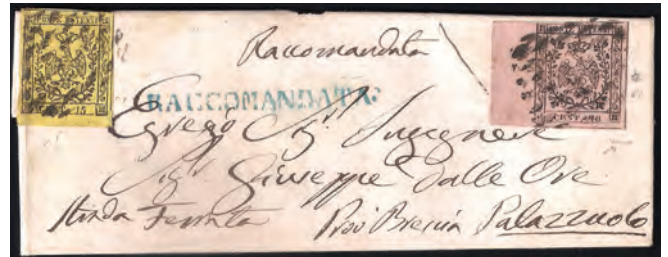 POSTE ESTENSI
CENT. 15
Raccomandata
CENT. 40
RACCOMANDATA
Egregio Sigr Ingegnere
Sigr Giuseppe Dalle Ore
Strada Ferrata Prov Brescia Palazzuolo